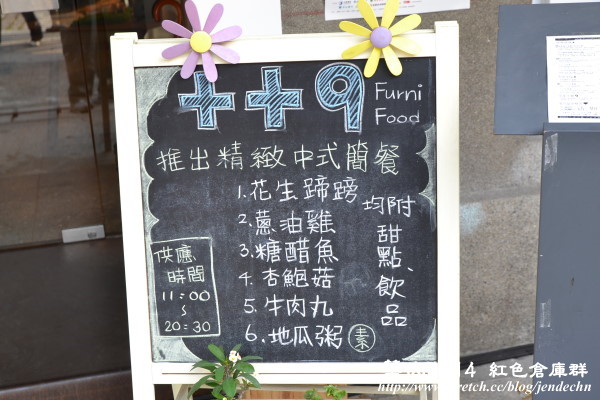 ++9
Furni
Food
推出精緻中式簡餐
1.花生蹄膀
2.蔥油雞
3.糖醋魚
4.杏鮑菇
5.牛肉丸
6.地瓜粥 素
均附甜點、飲品
供應
時間
11:00
~
20:30
4 紅色倉庫群